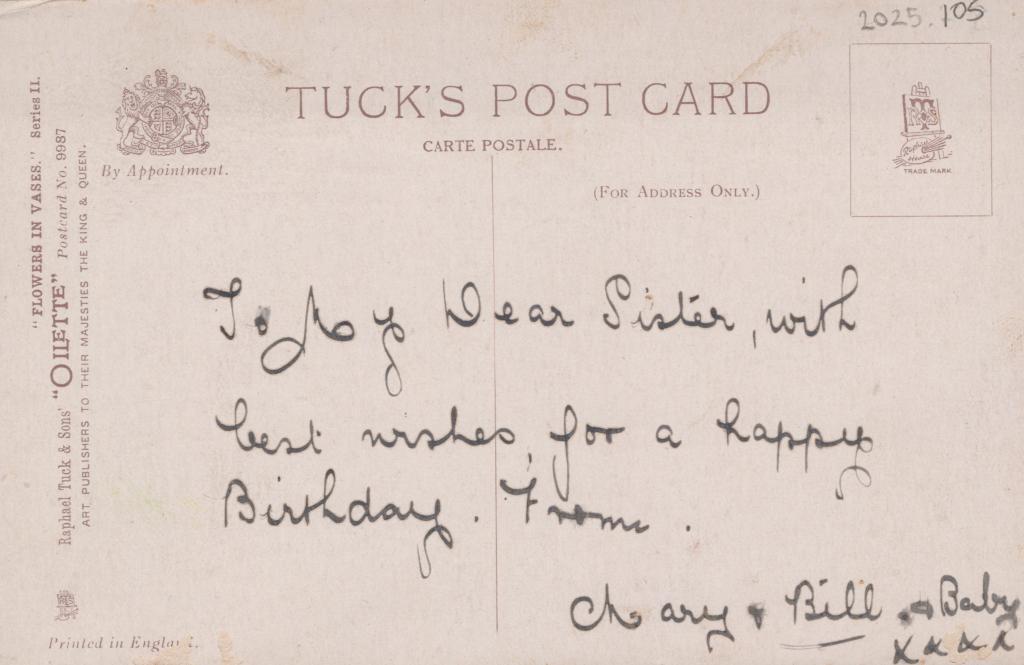 2025.105
TUCK'S POST CARD
CARTE POSTALE.
By Appointment.
(FOR ADDRESS ONLY.)
TRADE MARK
"FLOWERS IN VASES." Series II.
Raphael Tuck & Sons' "OILETTE" Postcard No. 9987
ART PUBLISHERS TO THEIR MAJESTIES THE KING & QUEEN.
To My Dear Sister, with
best wishes, for a happy
Birthday. From.
Mary & Bill & Baby
x x x x
Printed in England.